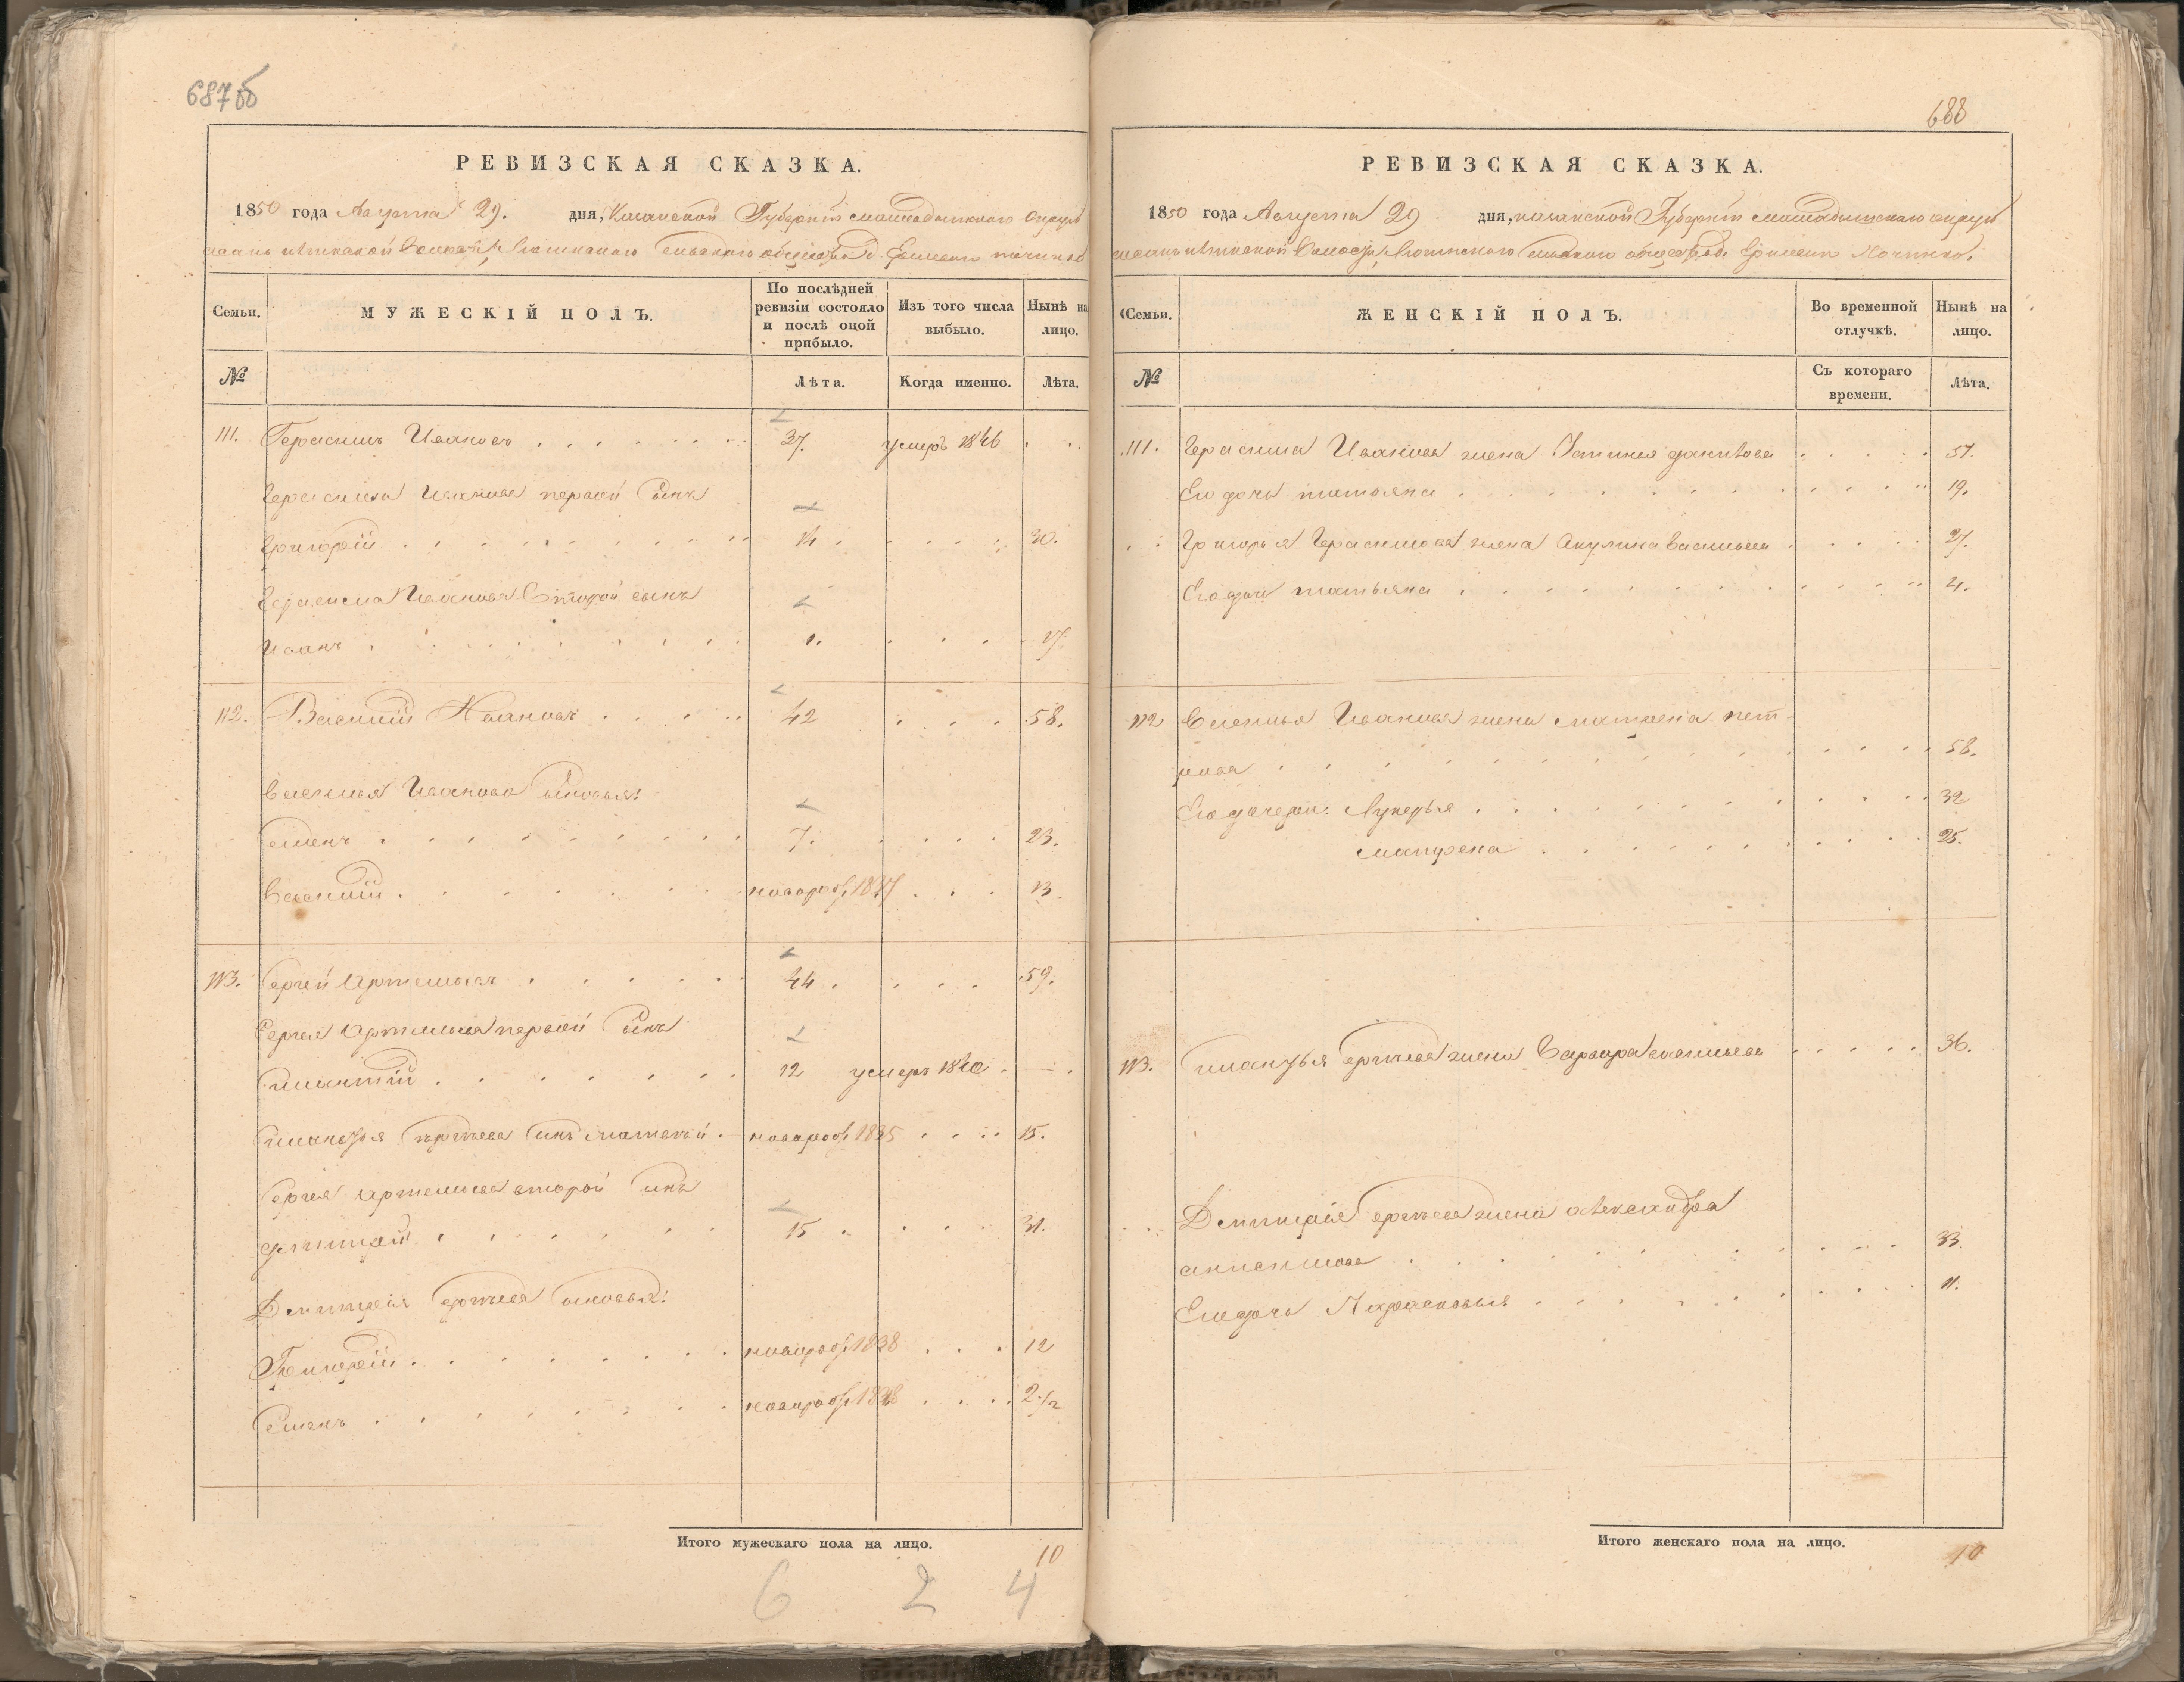 687 об
РЕВИЗСКАЯ СКАЗКА.
1850 года Августа 29. дня, Казанской Губернии
МУЖЕСКІЙ ПОЛЪ.
Семьи.
По послѣдней ревизіи состояло и послѣ оной прибыло.
Изъ того числа выбыло.
Нынѣ на лицо.
№
Лѣта.
Когда именно.
Лѣта.
111. Герасимъ Ивановъ 37. умеръ 1846
Герасима Иванова первой сынъ
Григорій 14 30.
Герасима Иванова второй сынъ
Иванъ 1. 17
112. Василий Ивановъ 42 58.
Василья Иванова сыновья:
Семенъ 7. 23.
Василий новорож. 1837 13
113. Сергей Артемьевъ 44 59.
Сергея Артемьева первой сынъ
12 умеръ 1840
Сергеева сынъ Матвей новорож 1835 15.
Сергея Артемьева второй сынъ
Дмитрей 15 31.
Дмитрия Сергеева сыновья:
Григорий новорож 1838 12
Семенъ новорож 1848 2 1/2
Итого мужескаго пола на лицо.
10
6 2 4
688
РЕВИЗСКАЯ СКАЗКА.
1850 года Августа 29 дня, казанской Губернии
Семьи.
ЖЕНСКІЙ ПОЛЪ.
Во временной отлучкѣ.
Нынѣ на лицо.
№
Съ котораго времени.
Лѣта.
111. Герасима Иванова жена Устинья 51.
Его дочь татьяна 19.
Григорья Герасимова жена Акулина Васильева 27.
Его дочь татьяна 4.
112 Василья Иванова жена матрена пет-
рова 58.
Его дочери: Лукерья 32
Матрена 25.
113. Сергеева жена Варвара 36.
Дмитрия Сергеева жена Александра
анисимова 33.
Его дочь Парасковья 11.
Итого женскаго пола на лицо.
10